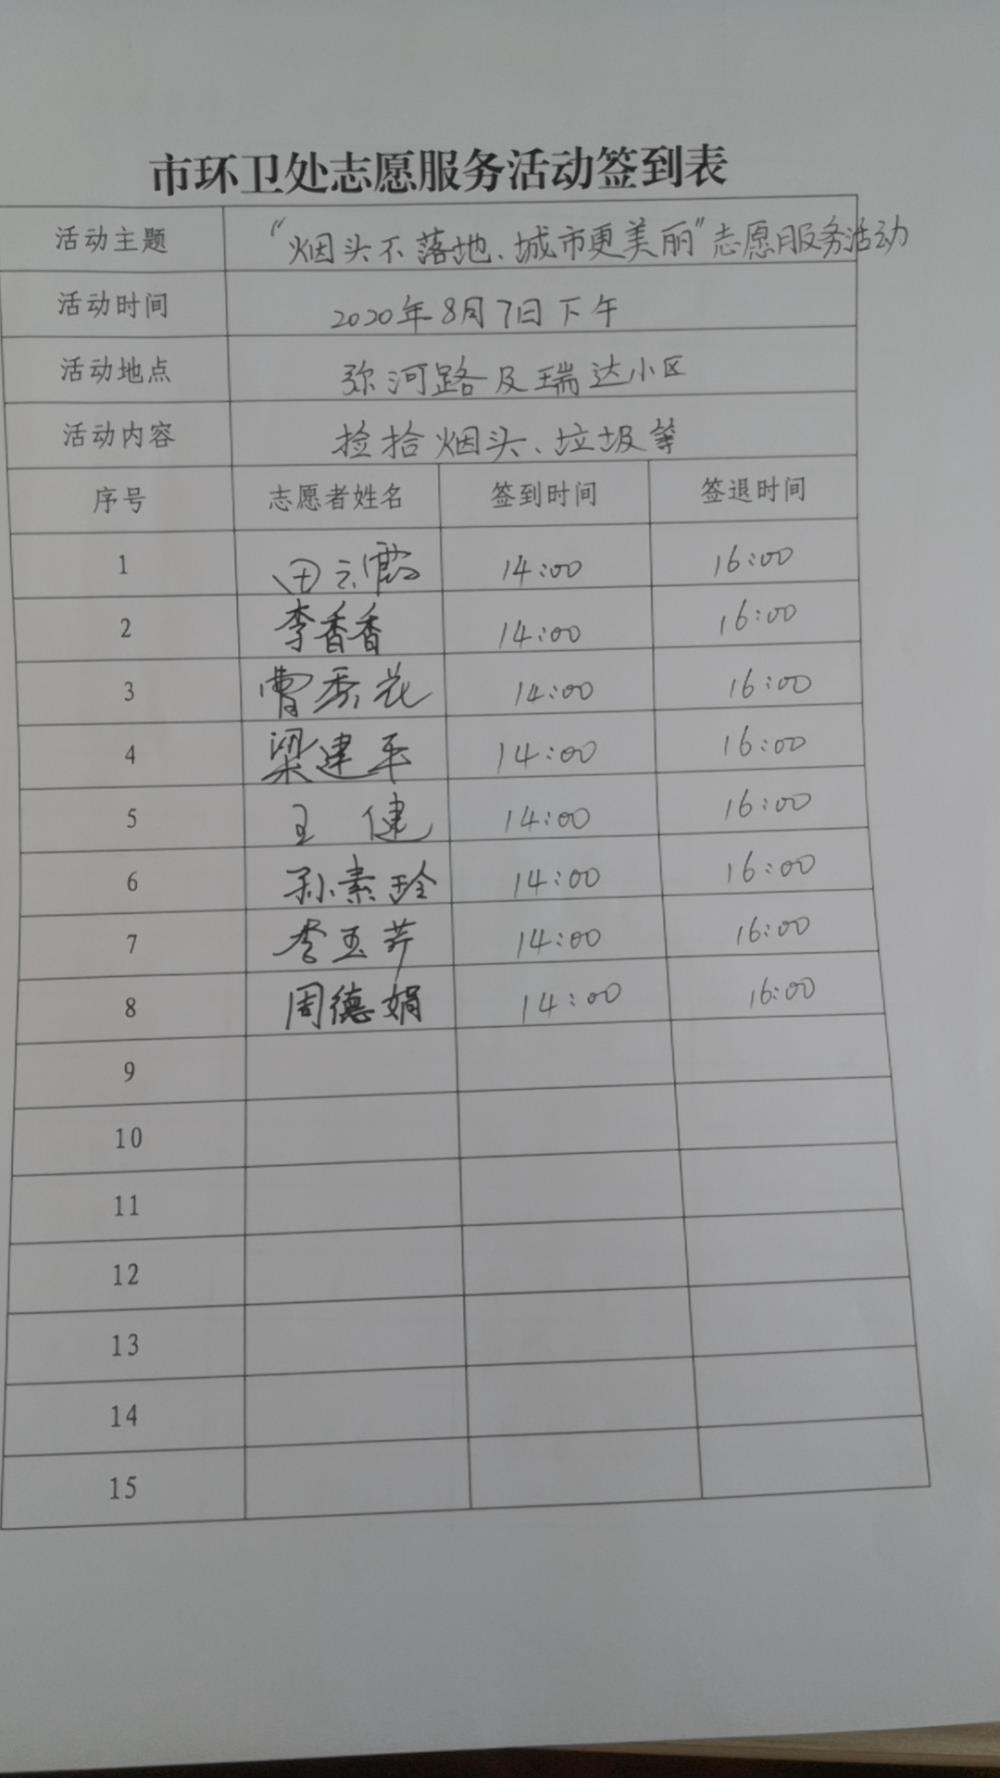 市环卫处志愿服务活动签到表
活动主题 “烟头不落地、城市更美丽”志愿服务活动
活动时间 2020年8月7日下午
活动地点 弥河路及瑞达小区
活动内容 捡拾烟头、垃圾等
序号 志愿者姓名 签到时间 签退时间
1 田云霞 14:00 16:00
2 李香香 14:00 16:00
3 曹秀花 14:00 16:00
4 梁建平 14:00 16:00
5 王健 14:00 16:00
6 孙素玲 14:00 16:00
7 李玉芹 14:00 16:00
8 周德娟 14:00 16:00
9
10
11
12
13
14
15